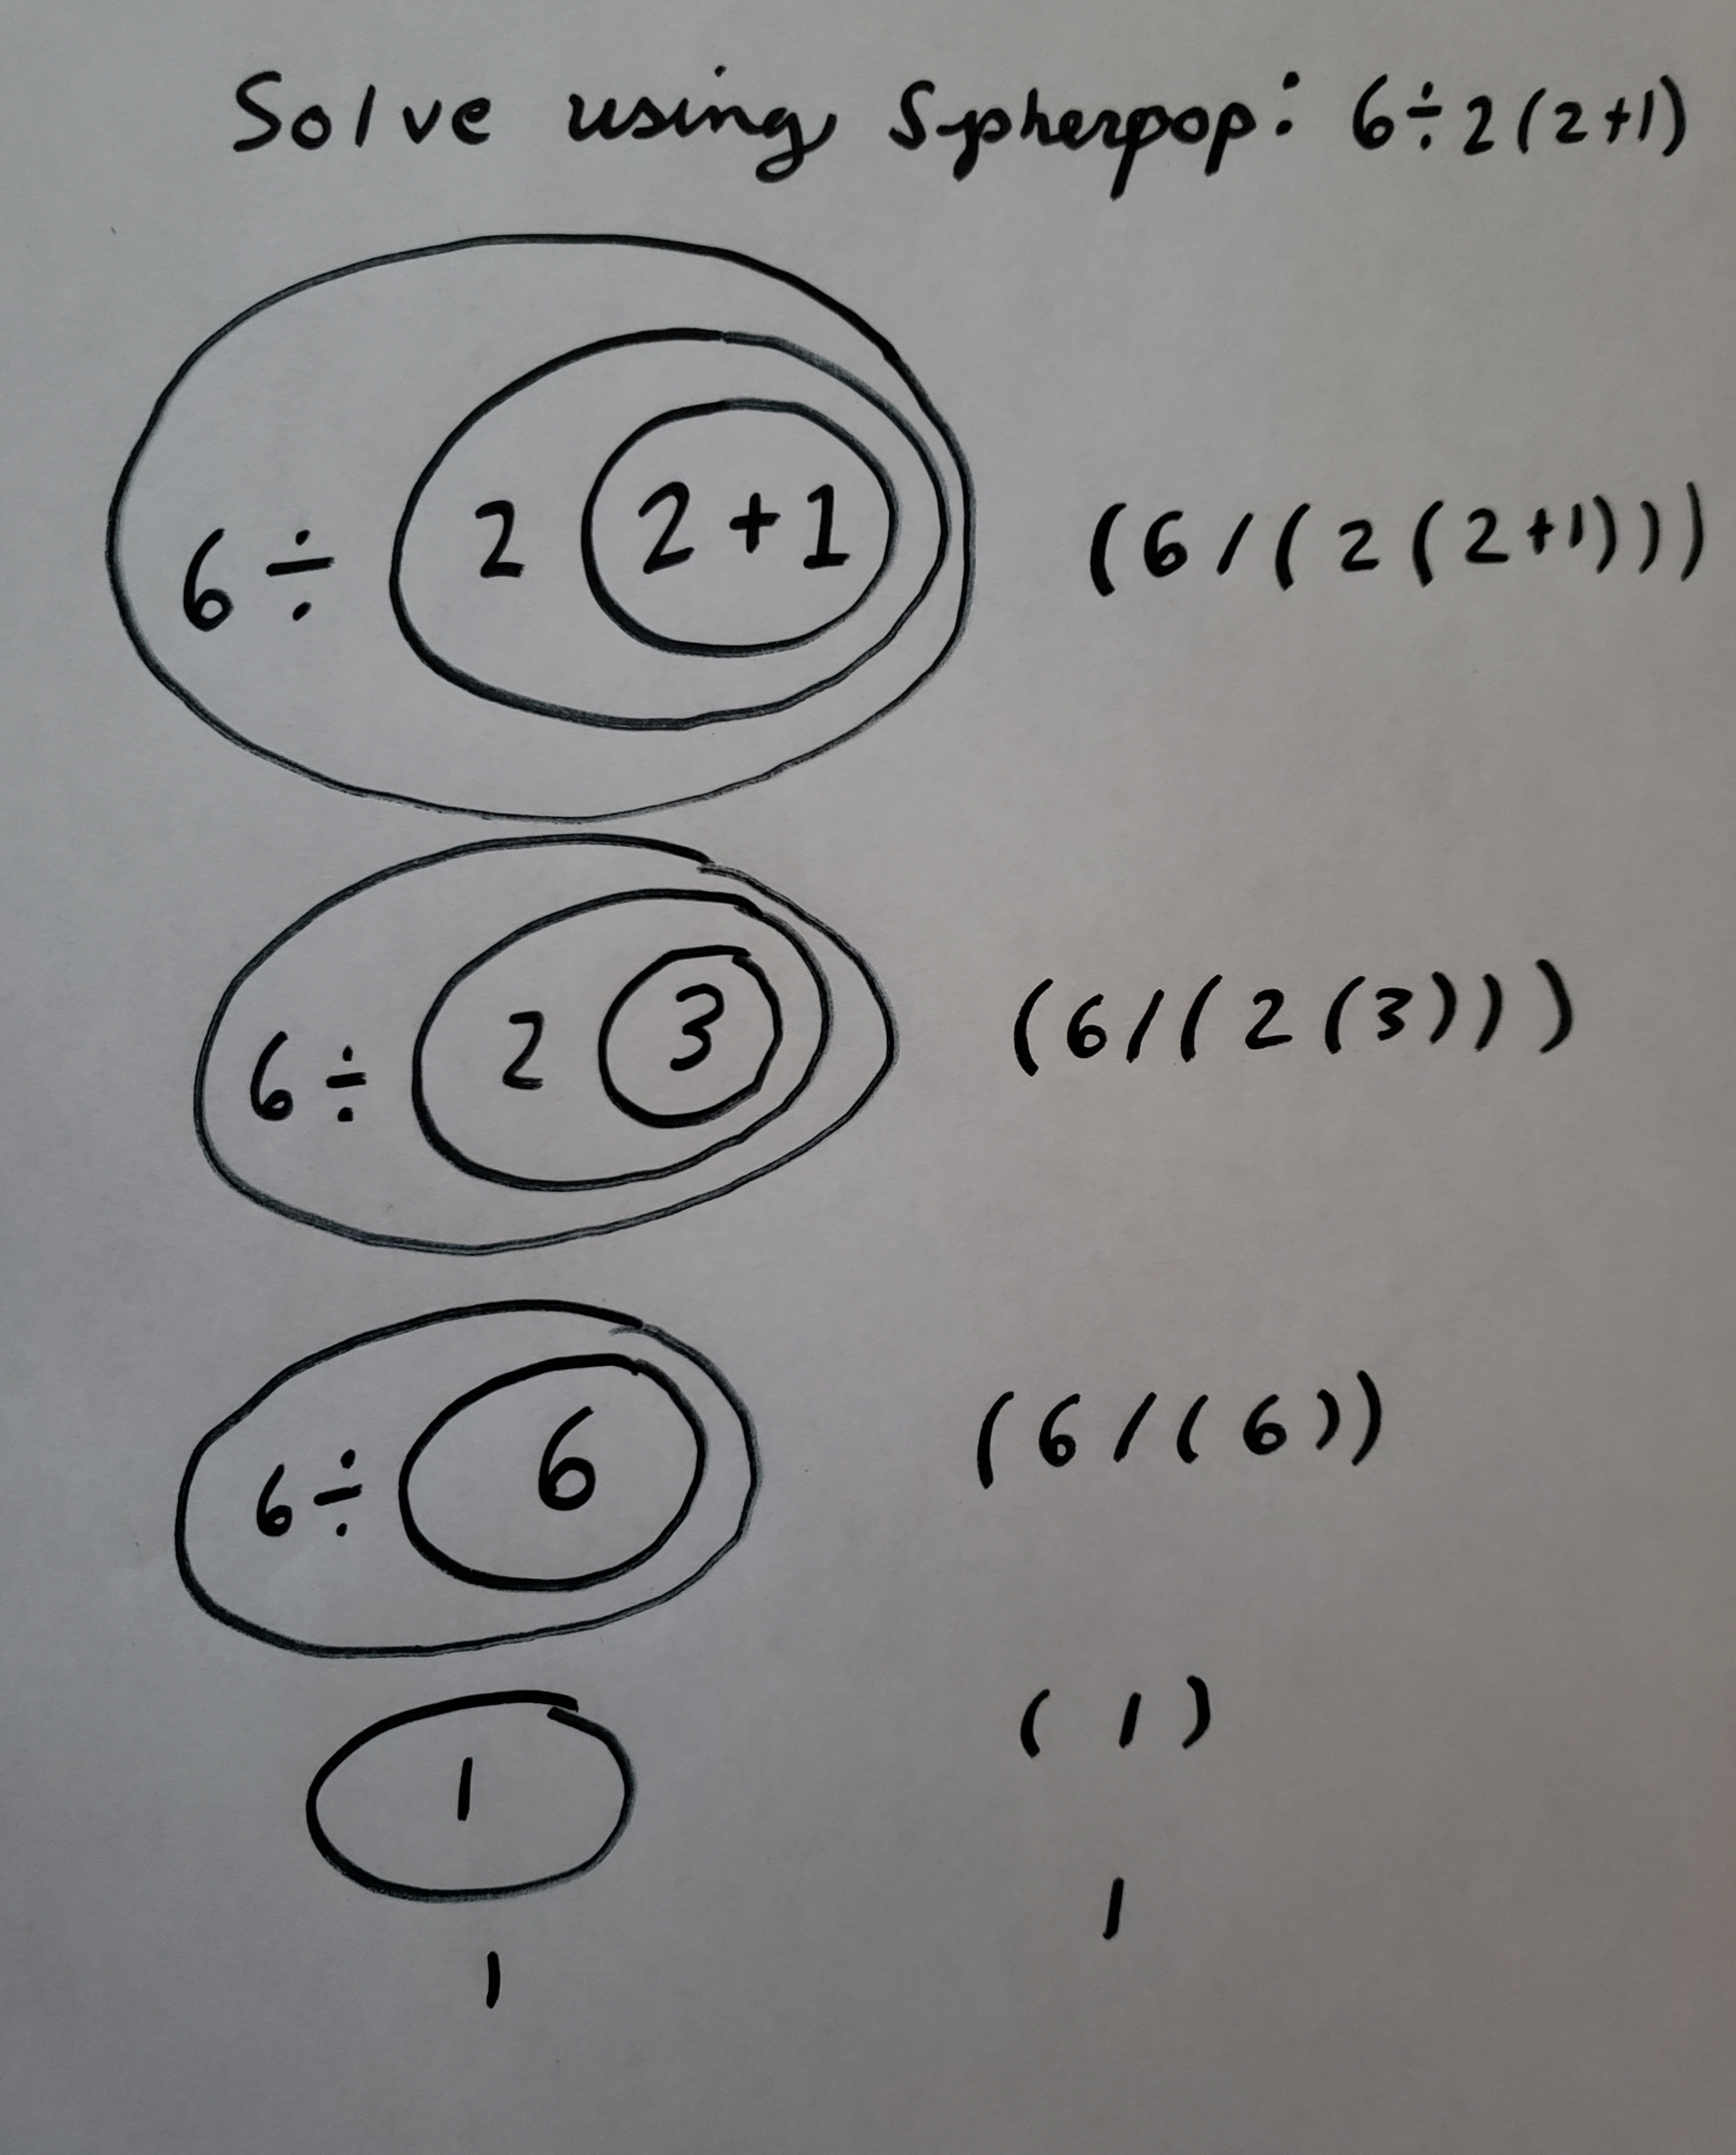 Solve using Spherepop: 6÷2(2+1)
6 ÷ 2 2+1 (6/(2(2+1)))
6 ÷ 2 3 (6/(2(3)))
6 ÷ 6 (6/(6))
1 (1)
1
1